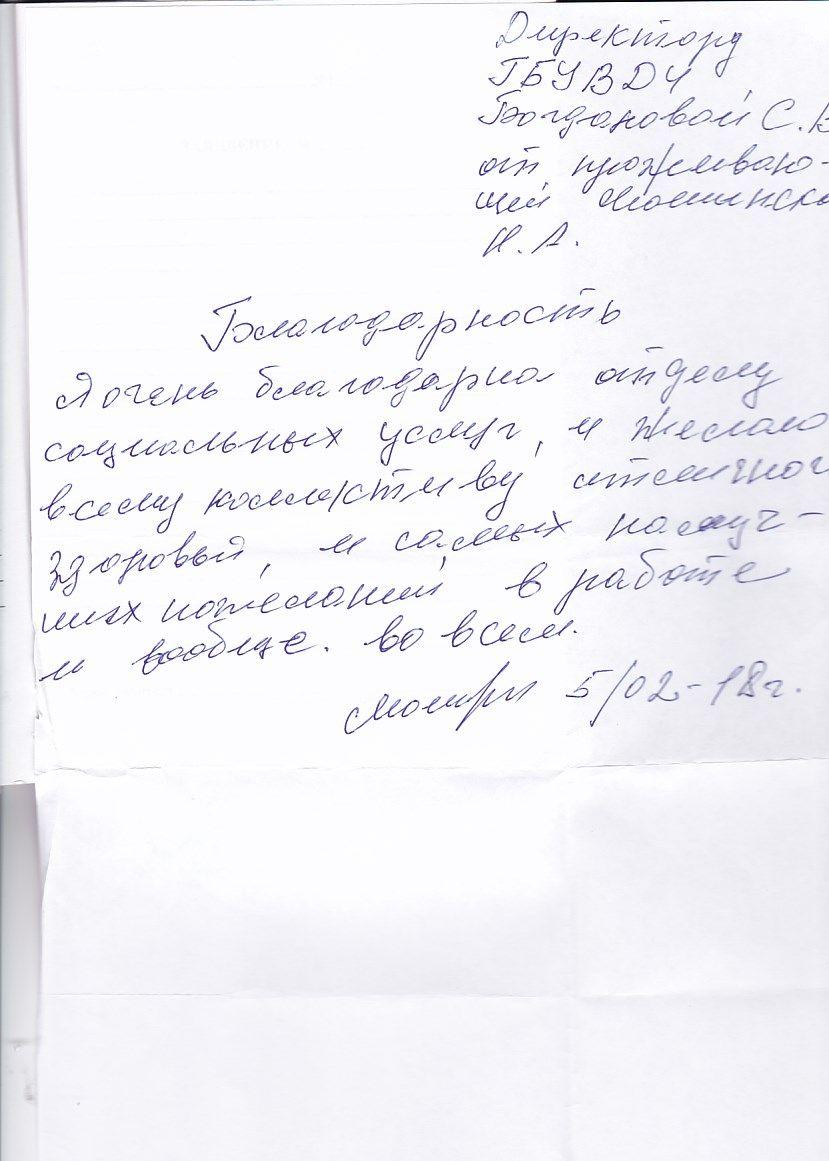 Директору
ГБУ ВДЧ
Богдановой С.В
от проживаю-
щей
Н. А.
Благодарность
Я очень благодарна отделу
социальных услуг, и желаю
всему коллективу отличного
здоровья, и самых наилуч-
ших пожеланий в работе
и вообще. во всем.
5/02-18г.